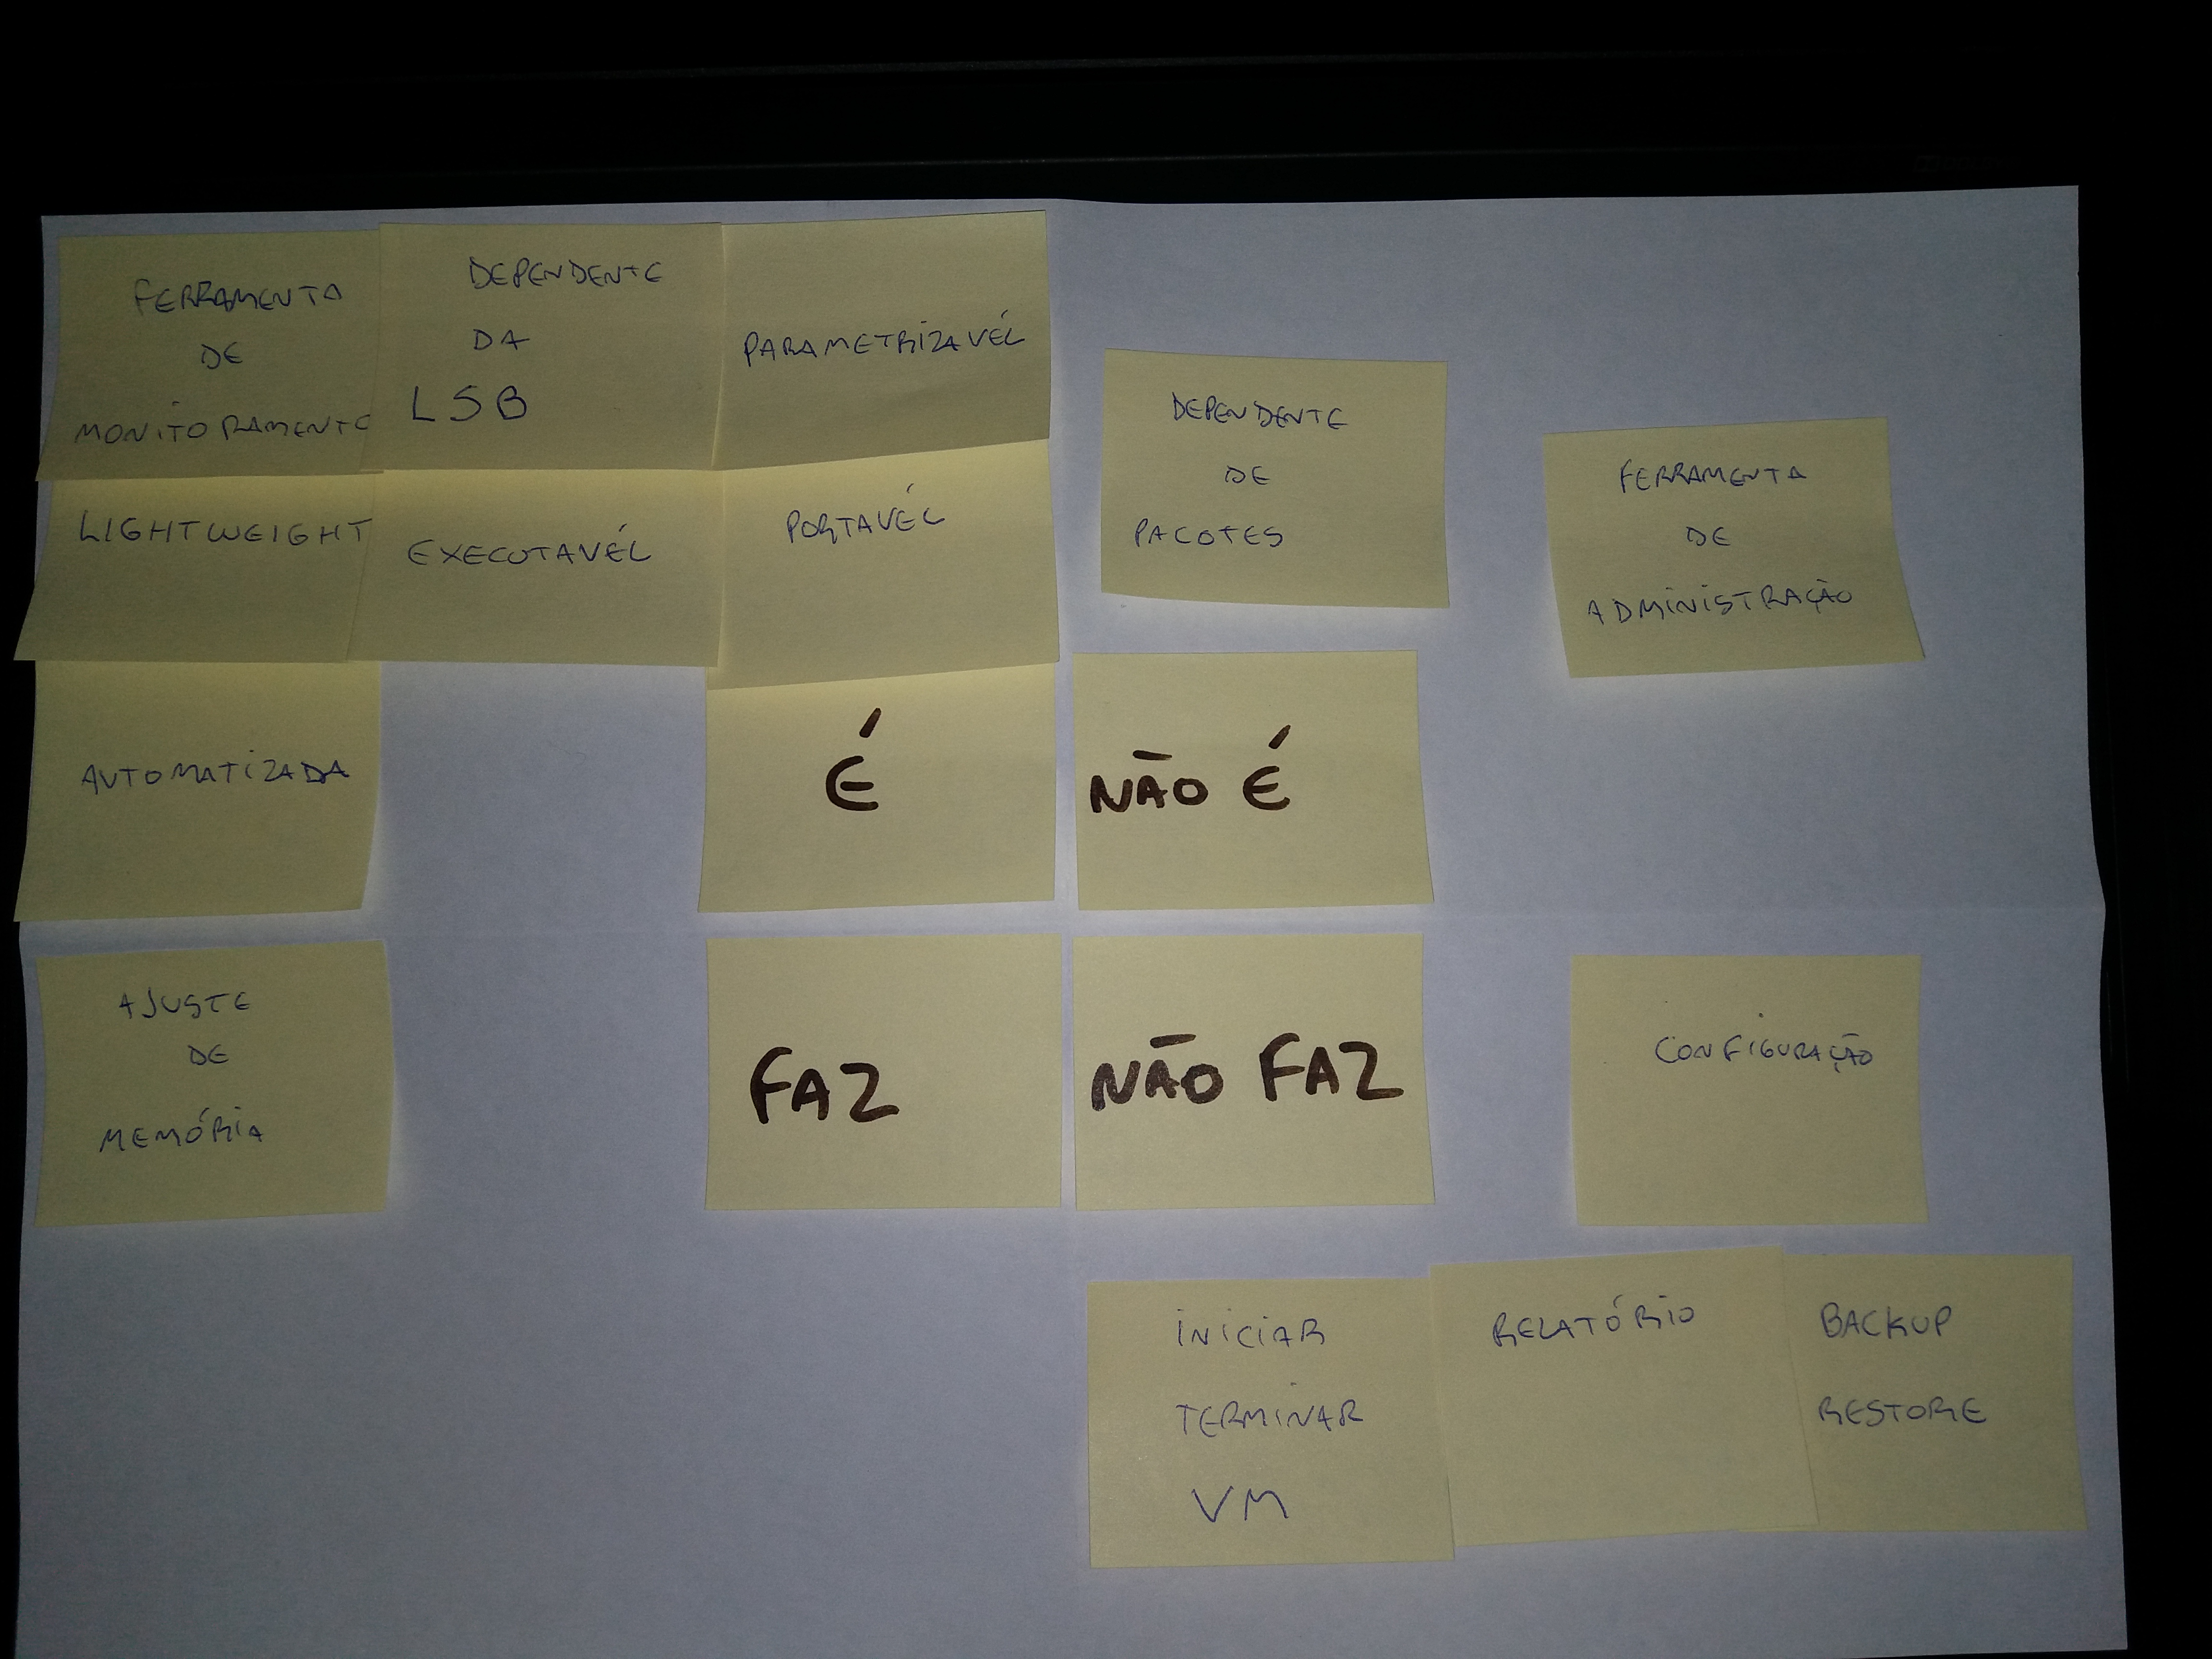 FERRAMENTA
DE
MONITORAMENTO
DEPENDENTE
DA
LSB
PARAMETRIZAVÉL
DEPENDENTE
DE
PACOTES
FERRAMENTA
DE
ADMINISTRAÇÃO
LIGHTWEIGHT
EXECUTAVÉL
PORTAVÉL
AUTOMATIZADA
É
NÃO É
AJUSTE
DE
MEMÓRIA
FAZ
NÃO FAZ
CONFIGURAÇÃO
INICIAR
TERMINAR
VM
RELATÓRIO
BACKUP
RESTORE